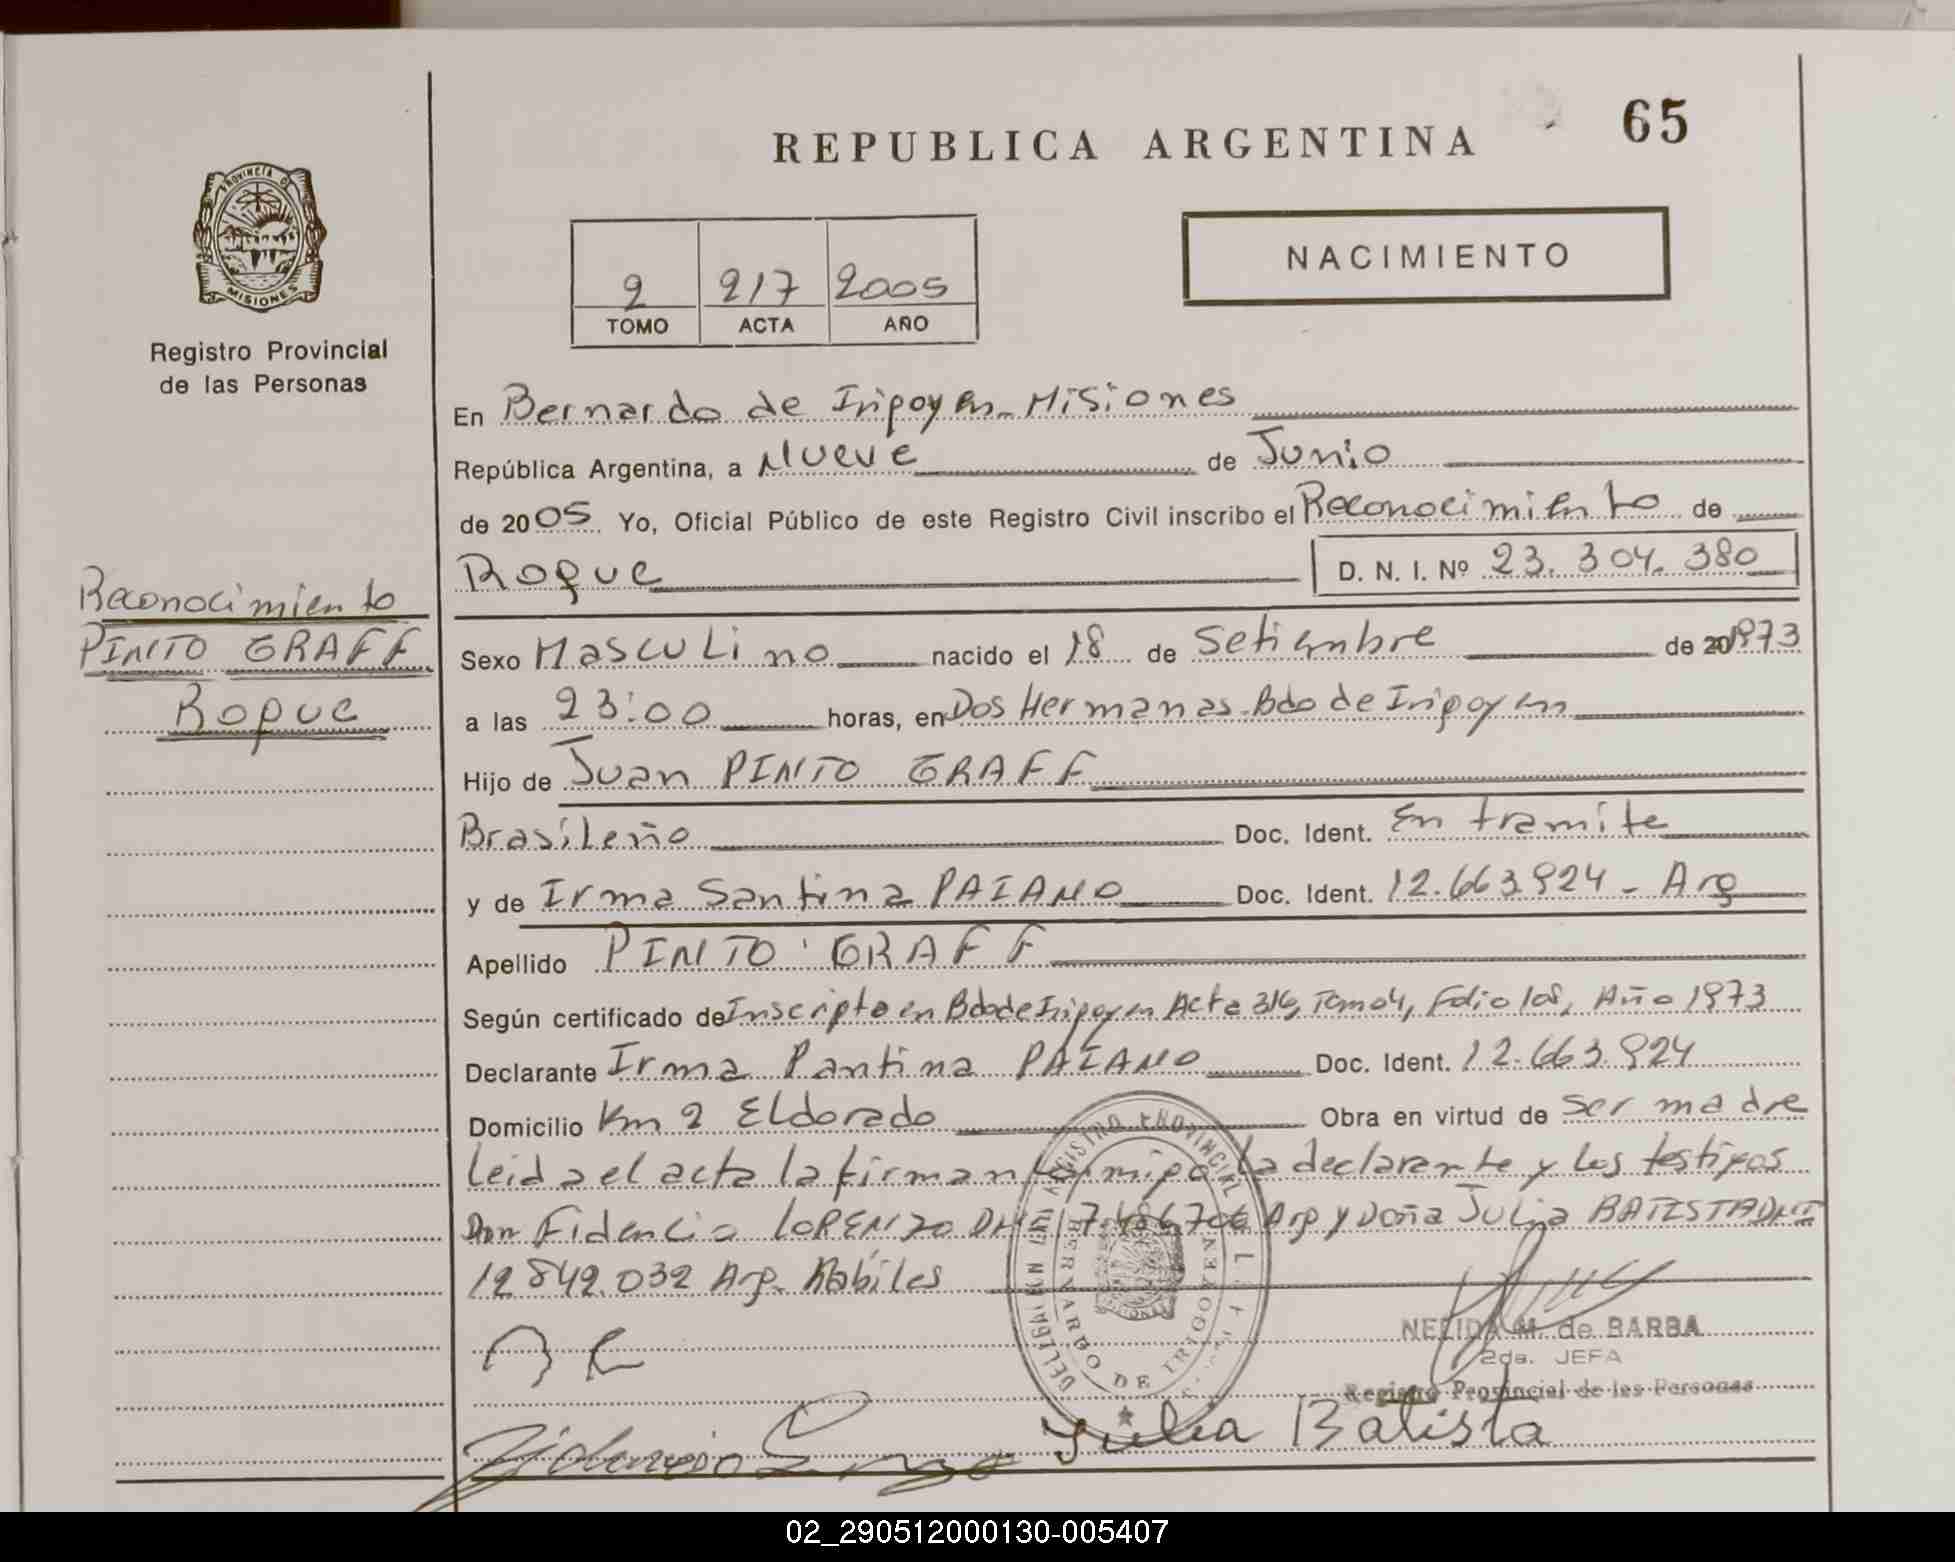 REPUBLICA ARGENTINA
65
PROVINCIA DE
MISIONES
Registro Provincial
de las Personas
2 217 2005
TOMO ACTA AÑO
NACIMIENTO
En Bernardo de Iripoyen - Misiones
República Argentina, a Nueve de Junio
de 2005 Yo, Oficial Público de este Registro Civil inscribo el Reconocimiento de
Roque D. N. I. Nº 23. 304. 380
Reconocimiento
PINTO GRAFF
Roque
Sexo Masculino nacido el 18 de Setiembre de 1973
a las 23:00 horas, en Dos Hermanas - Bdo de Iripoyen
Hijo de Juan PINTO GRAFF
Brasileño Doc. Ident. En tramite
y de Irma Santina PAIANO Doc. Ident. 12.663.924 - Arg
Apellido PINTO GRAFF
Según certificado de Inscripto en Bdo de Iripoyen Acta 316, Tomo 4, Folio 108, Año 1973
Declarante Irma Pantina PAIANO Doc. Ident. 12.663.924
Domicilio Km 2 Eldorado Obra en virtud de ser madre
Leida el acta la firman conmigo la declarante y los testigos
Don Fidencio LORENZO DNI Arg y Doña Julia BATISTA DNI
12.842.032 Arg. Habiles
REGISTRO PROVINCIAL
BERNARDO DE IRIGOYEN
NELIDA M. de BARBA
2da. JEFA
Registro Provincial de las Personas
Julia Batista
02_290512000130-005407